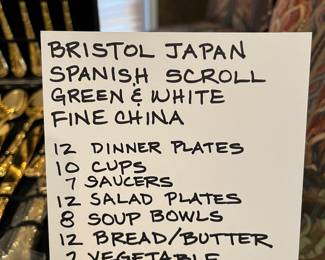 BRISTOL JAPAN
SPANISH SCROLL
GREEN & WHITE
FINE CHINA
12 DINNER PLATES
10 CUPS
7 SAUCERS
12 SALAD PLATES
8 SOUP BOWLS
12 BREAD/BUTTER
2 VEGETABLE